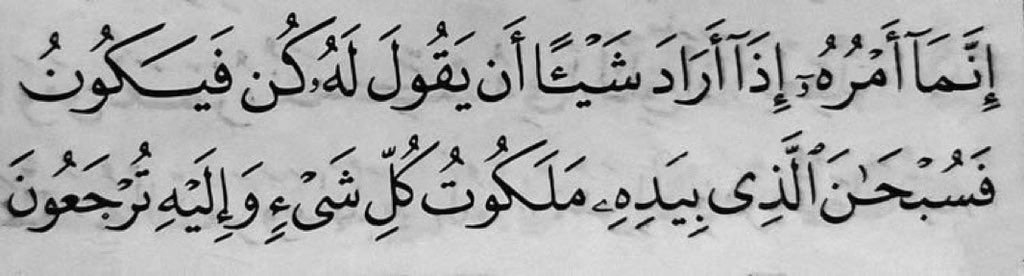 إِنَّمَآ أَمْرُهُۥٓ إِذَآ أَرَادَ شَيْـًٔا أَن يَقُولَ لَهُۥ كُن فَيَكُونُ
فَسُبْحَـٰنَ ٱلَّذِى بِيَدِهِۦ مَلَكُوتُ كُلِّ شَىْءٍ وَإِلَيْهِ تُرْجَعُونَ